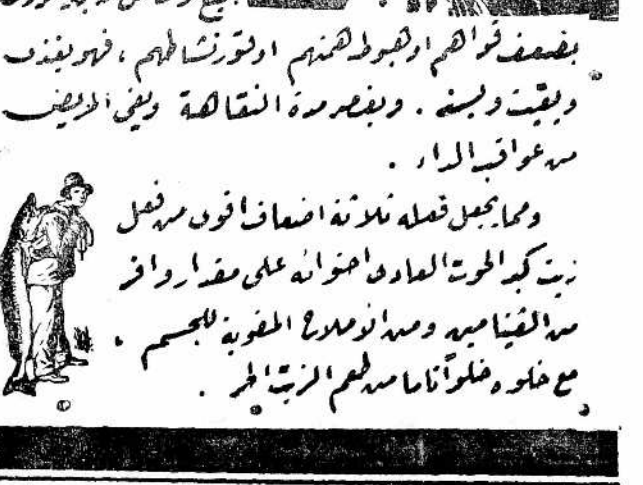 بضعف قواهم او هبوط همتهم او فتور نشاطهم ، فهو يغذى
ويقيت ويسند . ويقصر مدة النقاهة ويقي المريض
من عواقب الداء .
ومما يجعل فعله ثلاثة اضعاف اقوى من فعل
زيت كبد الحوت العادى احتوائه على مقدار وافر
من الڤيتامين ومن الاملاح المقوية للجسم ،
مع خلوه خلواً تاما من طعم الزيت المر .